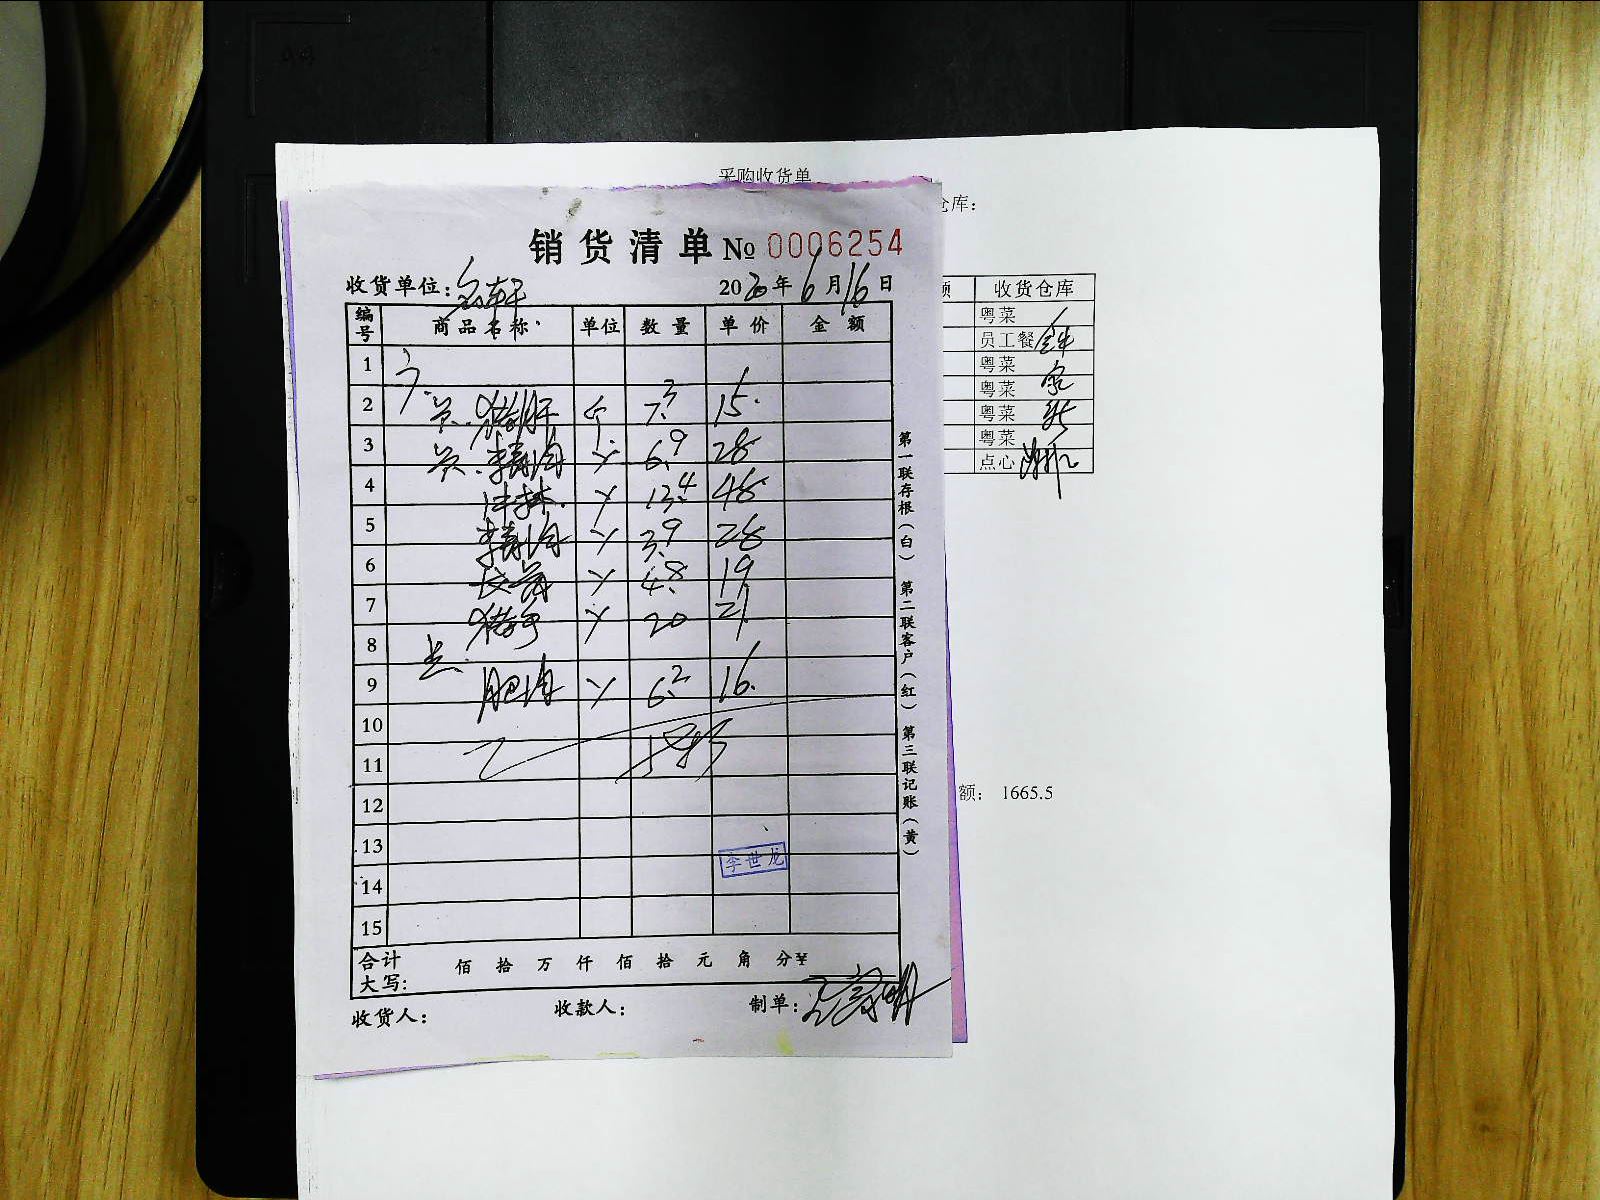 采购收货单
仓库：
销货清单 № 0006254
收货单位：名轩 2020年6月16日
编号 商品名称 单位 数量 单价 金额
1
2 猪肝 个 7.3 15.
3 6.9 28
4 13.4 48
5 3.9 28
6 4.8 19
7 猪手 20 21
8
9 肥肉 6.2 16.
10
11
12
13
14
15
李世龙
合计大写： 佰 拾 万 仟 佰 拾 元 角 分 ¥
收货人： 收款人： 制单：
第一联存根（白） 第二联客户（红） 第三联记账（黄）
额 收货仓库
粤菜
员工餐
粤菜
粤菜
粤菜
粤菜
点心
额： 1665.5